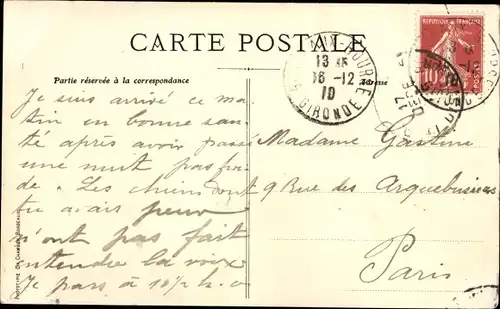 CARTE POSTALE
Partie réservée à la correspondance
Adresse
RÉPUBLIQUE FRANÇAISE
10
POSTES
13 45
16 -12
10
GIRONDE
Je suis arrivé ce ma
tin en bonne san
té après avoir passé
une nuit pas fra
de "Les chiens dont
tu avais peur
n'ont pas fait
entendre la voix
Je pars à 10 1/2 h.
Madame Gastine
9 Rue des Arquebusiers
Paris
PHOTOTYPIE CHAMBON BORDEAUX